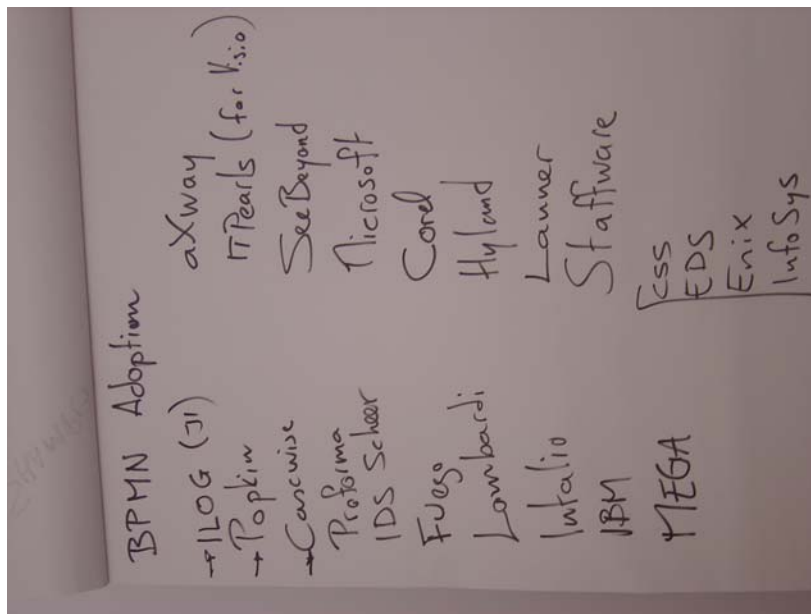 BPMN Adoption
→ ILOG (JI)
→ Popkin
→ Casewise
Proforma
IDS Scheer
Fuego
Lombardi
Intalio
IBM
MEGA
aXway
πPearls (for Visio)
SeeBeyond
Microsoft
Corel
Hyland
Lanner
Staffware
CSS
EDS
Enix
InfoSys